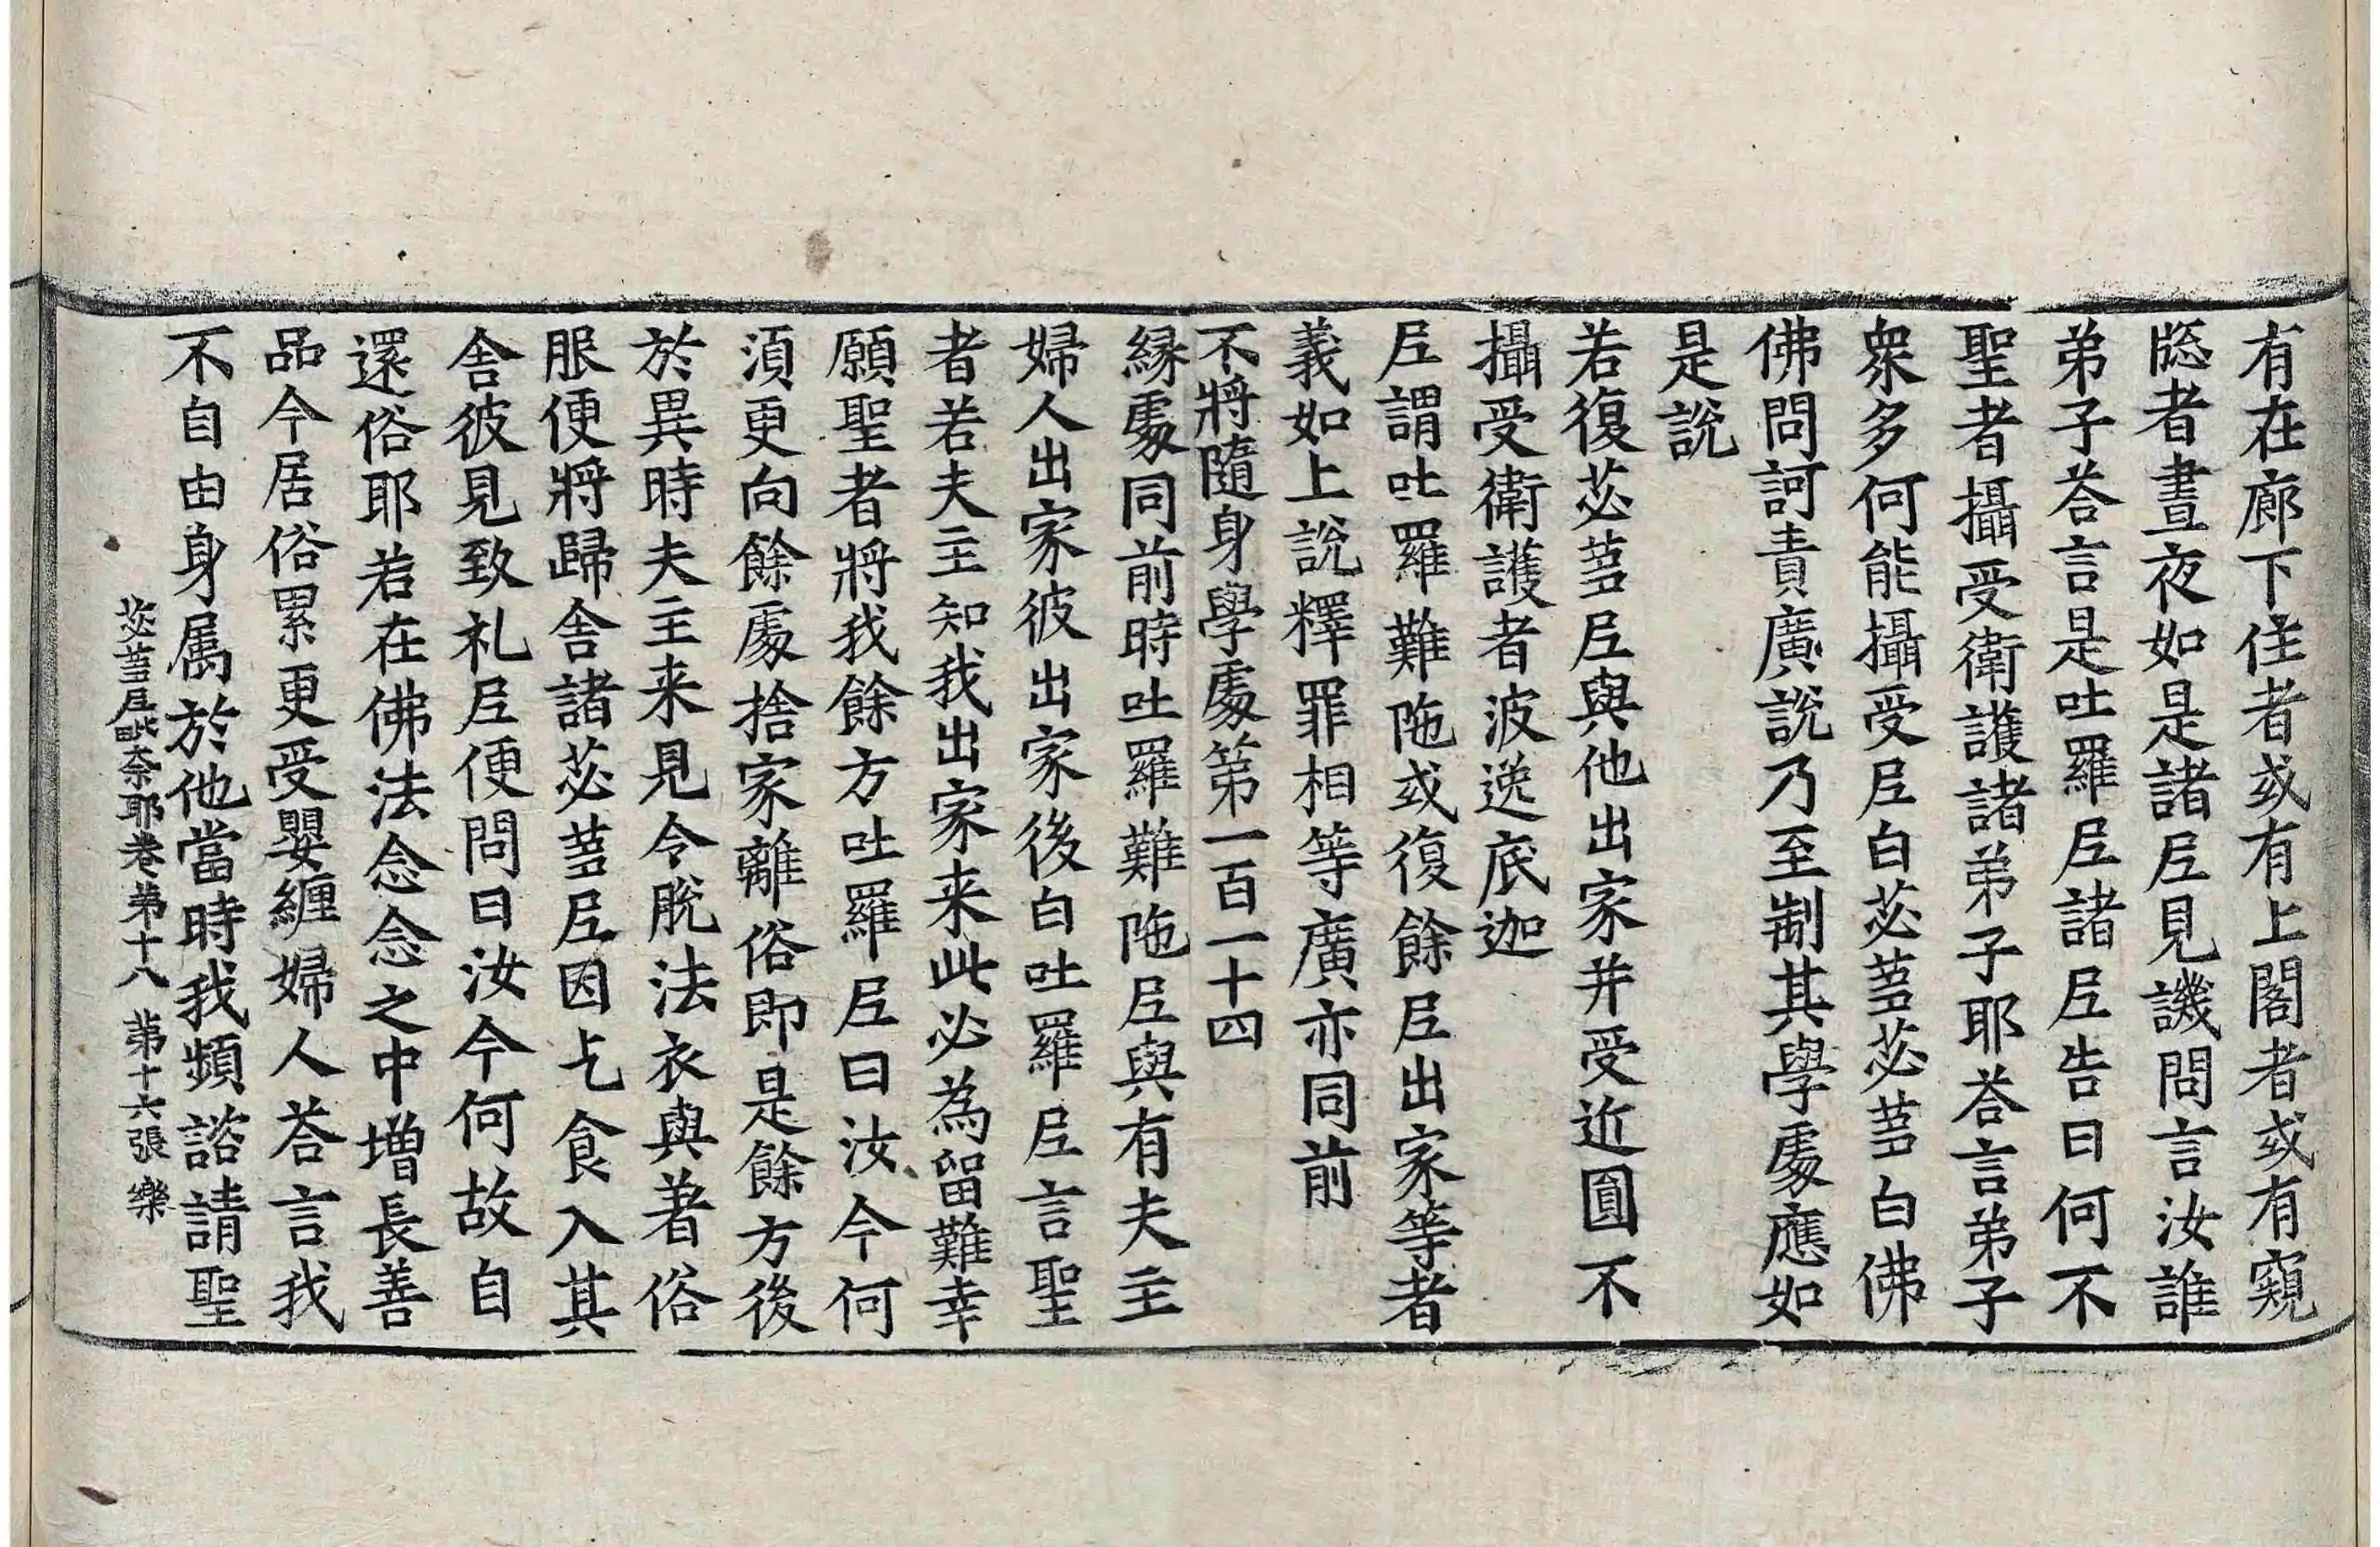 有在廊下住者或有上閣者或有窺
牕者晝夜如是諸𡰱見譏問言汝誰
弟子荅言是吐羅𡰱諸𡰱告曰何不
聖者攝受衛護諸弟子耶荅言弟子
衆多何能攝受𡰱白苾蒭苾蒭白佛
佛問訶責廣說乃至制其學處應如
是說
若復苾蒭𡰱與他出家并受近圓不
攝受衛護者波逸底迦
𡰱謂吐羅難陁或復餘𡰱出家等者
義如上說釋罪相等廣亦同前
不將隨身學處第一百一十四
緣處同前時吐羅難陁𡰱與有夫主
婦人出家彼出家後白吐羅𡰱言聖
者若夫主知我出家来此必為留難幸
願聖者將我餘方吐羅𡰱曰汝今何
湏更向餘處捨家離俗即是餘方後
於異時夫主来見令脫法衣與著俗
服便將歸舍諸苾蒭𡰱因乞食入其
舍彼見致礼𡰱便問曰汝今何故自
還俗耶若在佛法念念之中增長善
品今居俗累更受嬰纏婦人荅言我
不自由身属於他當時我頻諮請聖
苾蒭𡰱毗奈耶卷第十八 第十六張 樂